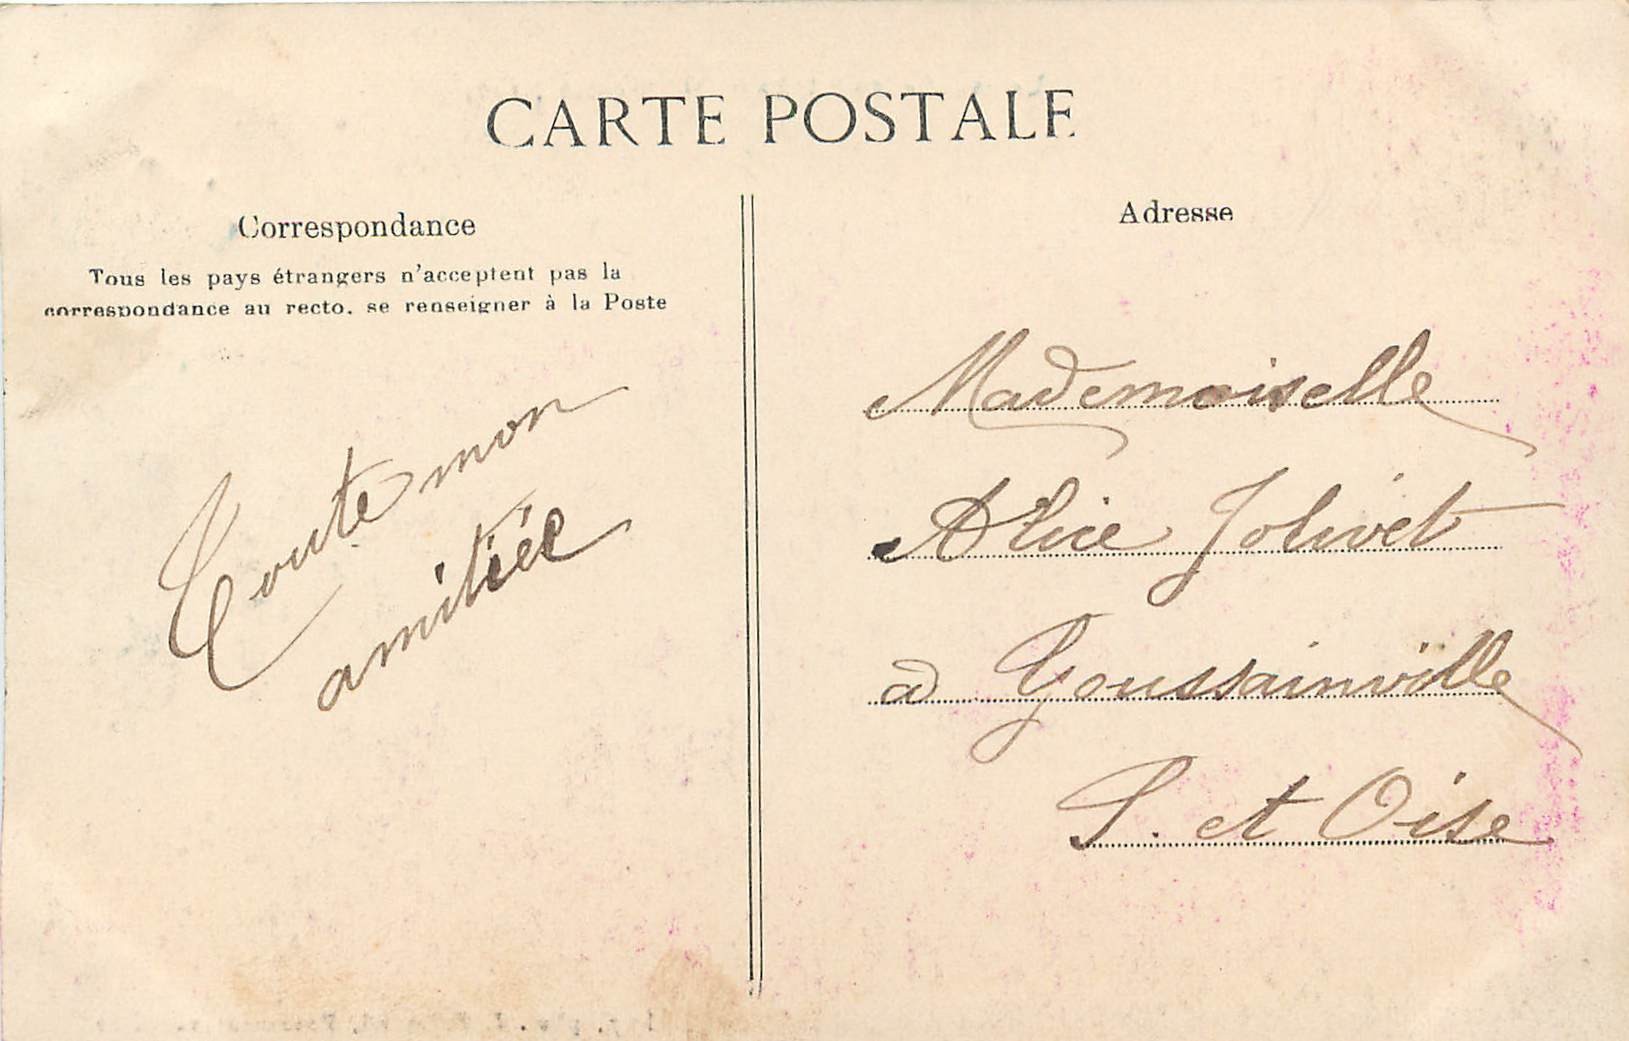 CARTE POSTALE
Correspondance
Tous les pays étrangers n'acceptent pas la
correspondance au recto. se renseigner à la Poste
Toute mon
amitiée
Adresse
Mademoiselle
Alice Jolivet
à Goussainville
S. et Oise